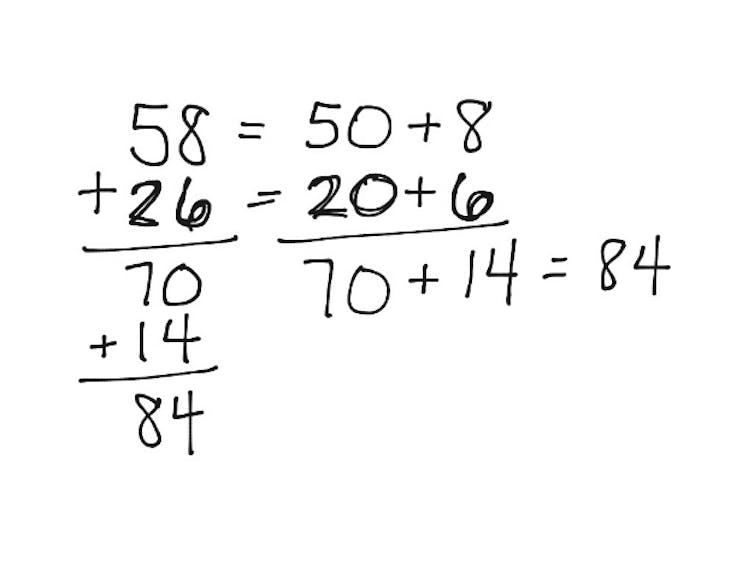 58 = 50 + 8
+ 26 = 20 + 6
70 70 + 14 = 84
+ 14
84